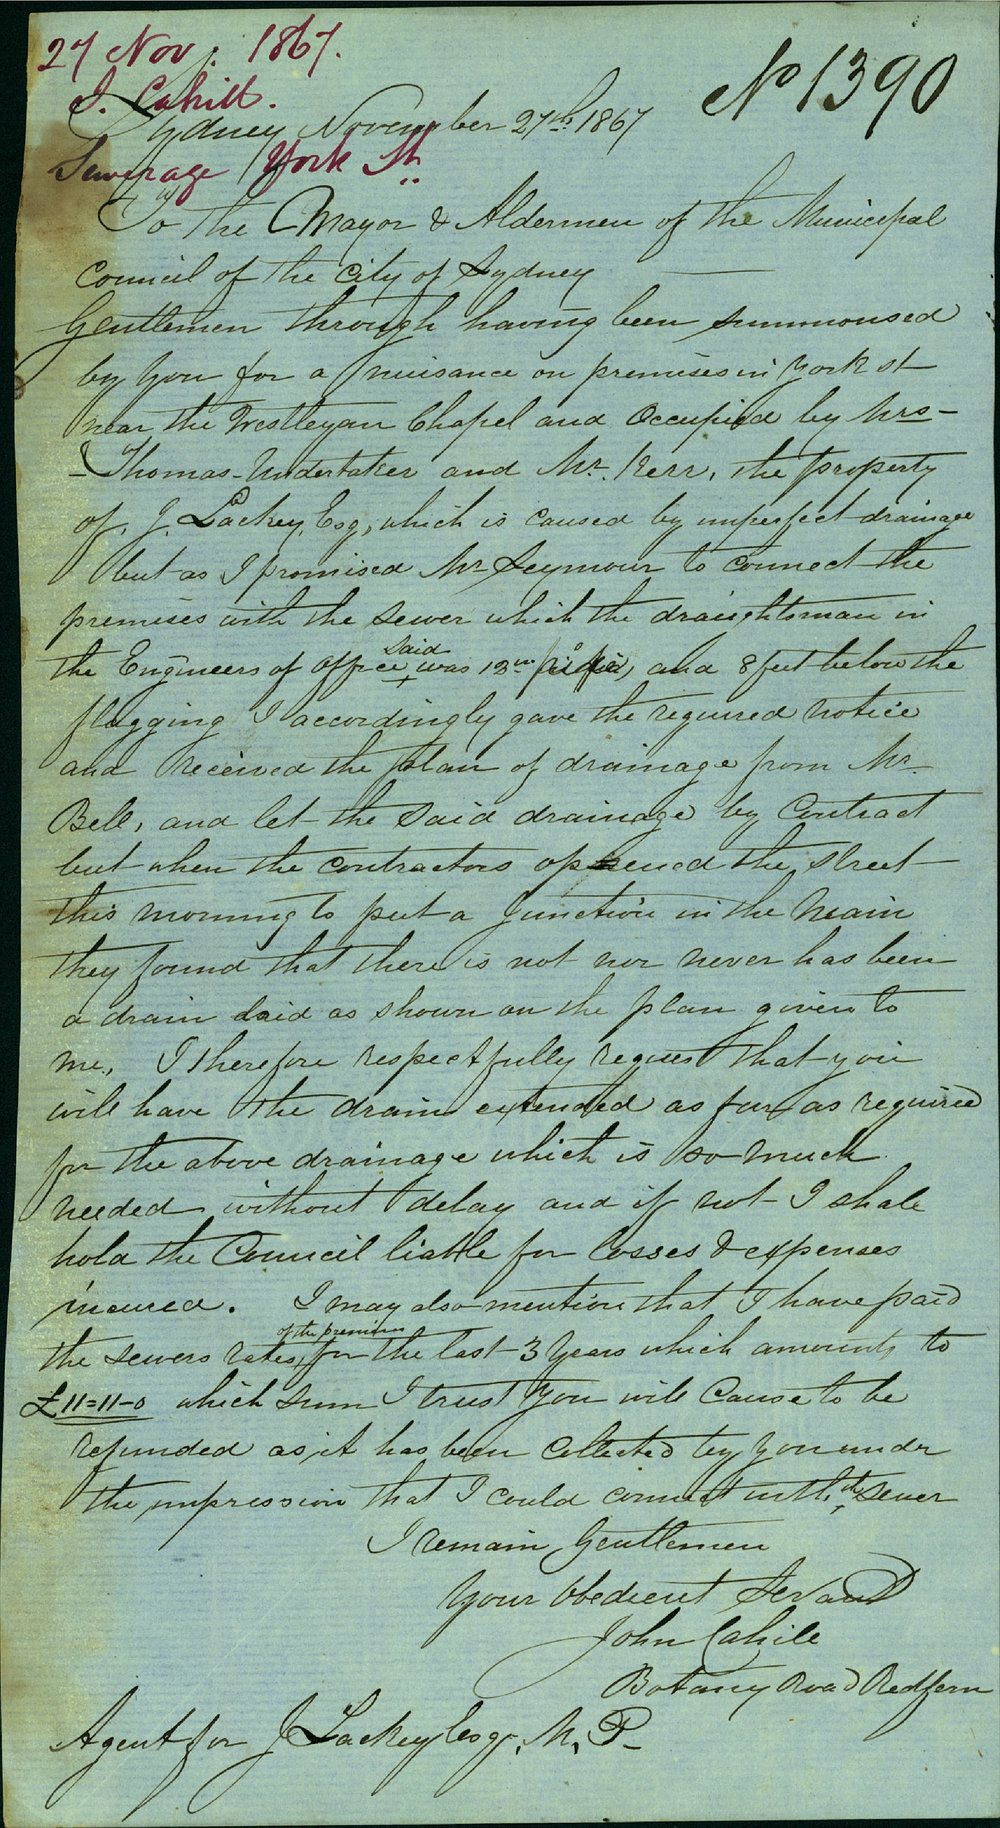 27 Nov. 1867.
J. Cahill.
No 1390
Sydney November 27th 1867
Sewerage York St.
To the Mayor & Aldermen of the Municipal
Council of the City of Sydney
Gentlemen through having been summonsed
by you for a nuisance on premises in York st
near the Westleyan Chapel and Occupied by Mrs
Thomas Undertaker and Mr. Kerr, the property
of J. Lackey Esq, which is caused by imperfect drainage
but as I promised Mr Seymour to connect the
premises with the sewer which the draughtsman in
the Engineers of Office said was 12in and 8 feet below the
flagging I accordingly gave the required notice
and received the plan of drainage from Mr
Bell, and let the said drainage by Contract
but when the contractors opened the street
this morning to put a junction in the main
they found that there is not nor never has been
a drain laid as shown on the plan given to
me, I therefore respectfully request that you
will have the drain extended as far as required
for the above drainage which is so much
needed without delay and if not I shall
hold the Council liable for losses & expenses
incured. I may also mention that I have paid
the sewers rates of the premises for the last 3 years which amounts to
£11=11-0 which sum I trust you will Cause to be
refunded as it has been Collected by you under
the impression that I could connect with the sewer
I remain Gentlemen
Your Obedient Servant
John Cahill
Botany Road Redfern
Agent for J Lackey Esq. M. P.